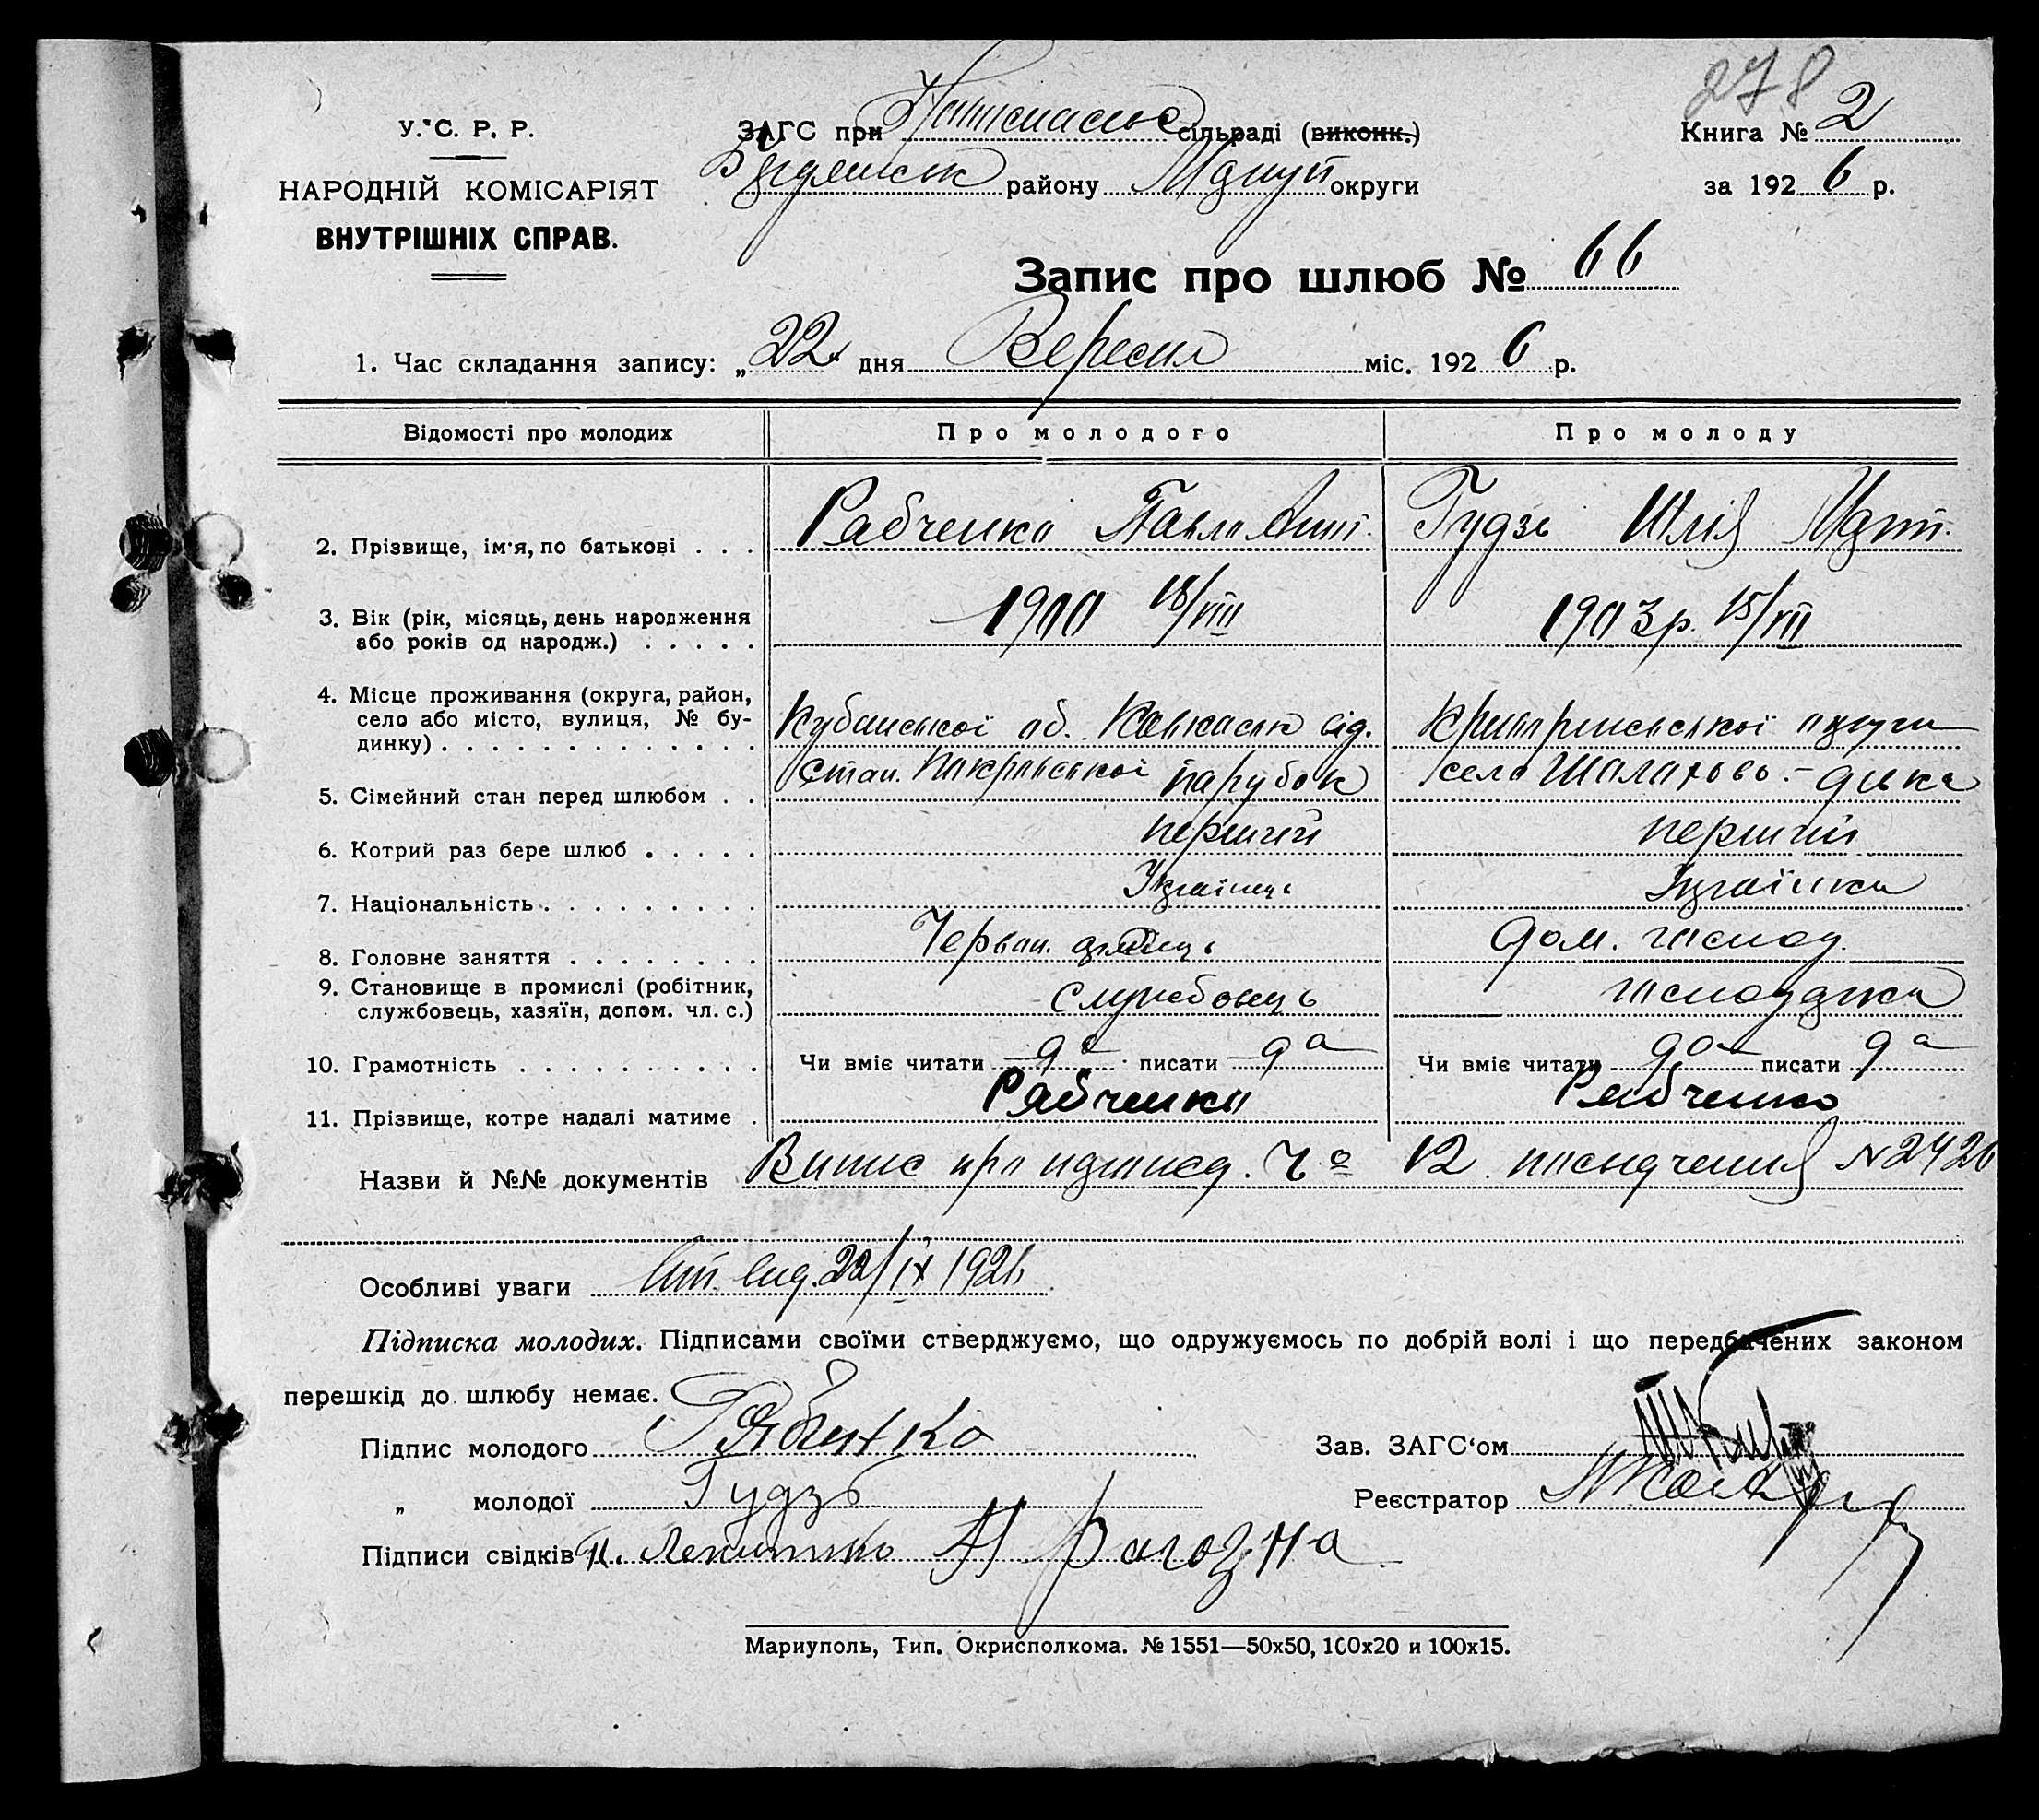 278
У. С. Р. Р.
НАРОДНІЙ КОМІСАРІЯТ
ВНУТРІШНІХ СПРАВ.
ЗАГС при сільраді (виконк.)
району округи
Книга № 2
за 1926 р.
Запис про шлюб № 66
1. Час складання запису: „22" дня Вересня міс. 1926 р.
Відомості про молодих Про молодого Про молоду
2. Прізвище, ім'я, по батькові . . . Рабченко Павло Ант. Гудзь Юлія
3. Вік (рік, місяць, день народження
або років од народж.) . . . . . 1900 18/VIII 1903 р. 15/VII
4. Місце проживання (округа, район,
село або місто, вулиця, № бу-
динку) . . . . . . . . . . . . . Кубанської об. Кавкаськ від. Криворижської округи
стан. Покровської парубок село Шолохово - дівка
5. Сімейний стан перед шлюбом . .
6. Котрий раз бере шлюб . . . . . перший перший
7. Національність . . . . . . . . . Українець Українка
8. Головне заняття . . . . . . . . Червон. дом. господ.
9. Становище в промислі (робітник,
службовець, хазяїн, допом. чл. с.) службовець
10. Грамотність . . . . . . . . . . Чи вміє читати да писати да Чи вміє читати да писати да
11. Прізвище, котре надалі матиме . Рябченко Рябченко
Назви й №№ документів Випис про 12 посвідчення №2426
Особливі уваги вит. вид. 22/IX 1926
Підписка молодих. Підписами своїми стверджуємо, що одружуємось по добрій волі і що передбачених законом
перешкід до шлюбу немає.
Підпис молодого Рябченко Зав. ЗАГС'ом
„ молодої Гудзь Реєстратор
Підписи свідків Рагозна
Мариуполь, Тип. Окрисполкома. № 1551—50x50, 100x20 и 100x15.